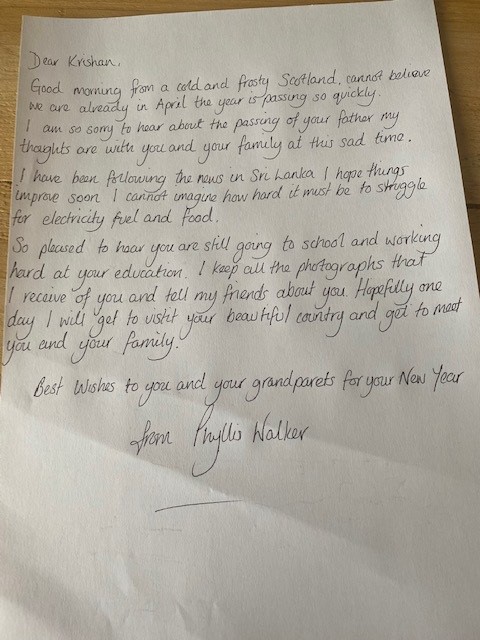 Dear Krishan,
Good morning from a cold and frosty Scotland, cannot believe
we are already in April the year is passing so quickly.
I am so sorry to hear about the passing of your father my
thoughts are with you and your family at this sad time.
I have been following the news in Sri Lanka I hope things
improve soon I cannot imagine how hard it must be to struggle
for electricity fuel and food.
So pleased to hear you are still going to school and working
hard at your education. I keep all the photographs that
I receive of you and tell my friends about you. Hopefully one
day I will get to visit your beautiful country and get to meet
you and your family.
Best Wishes to you and your grandparets for your New Year
from Phyllis Walker